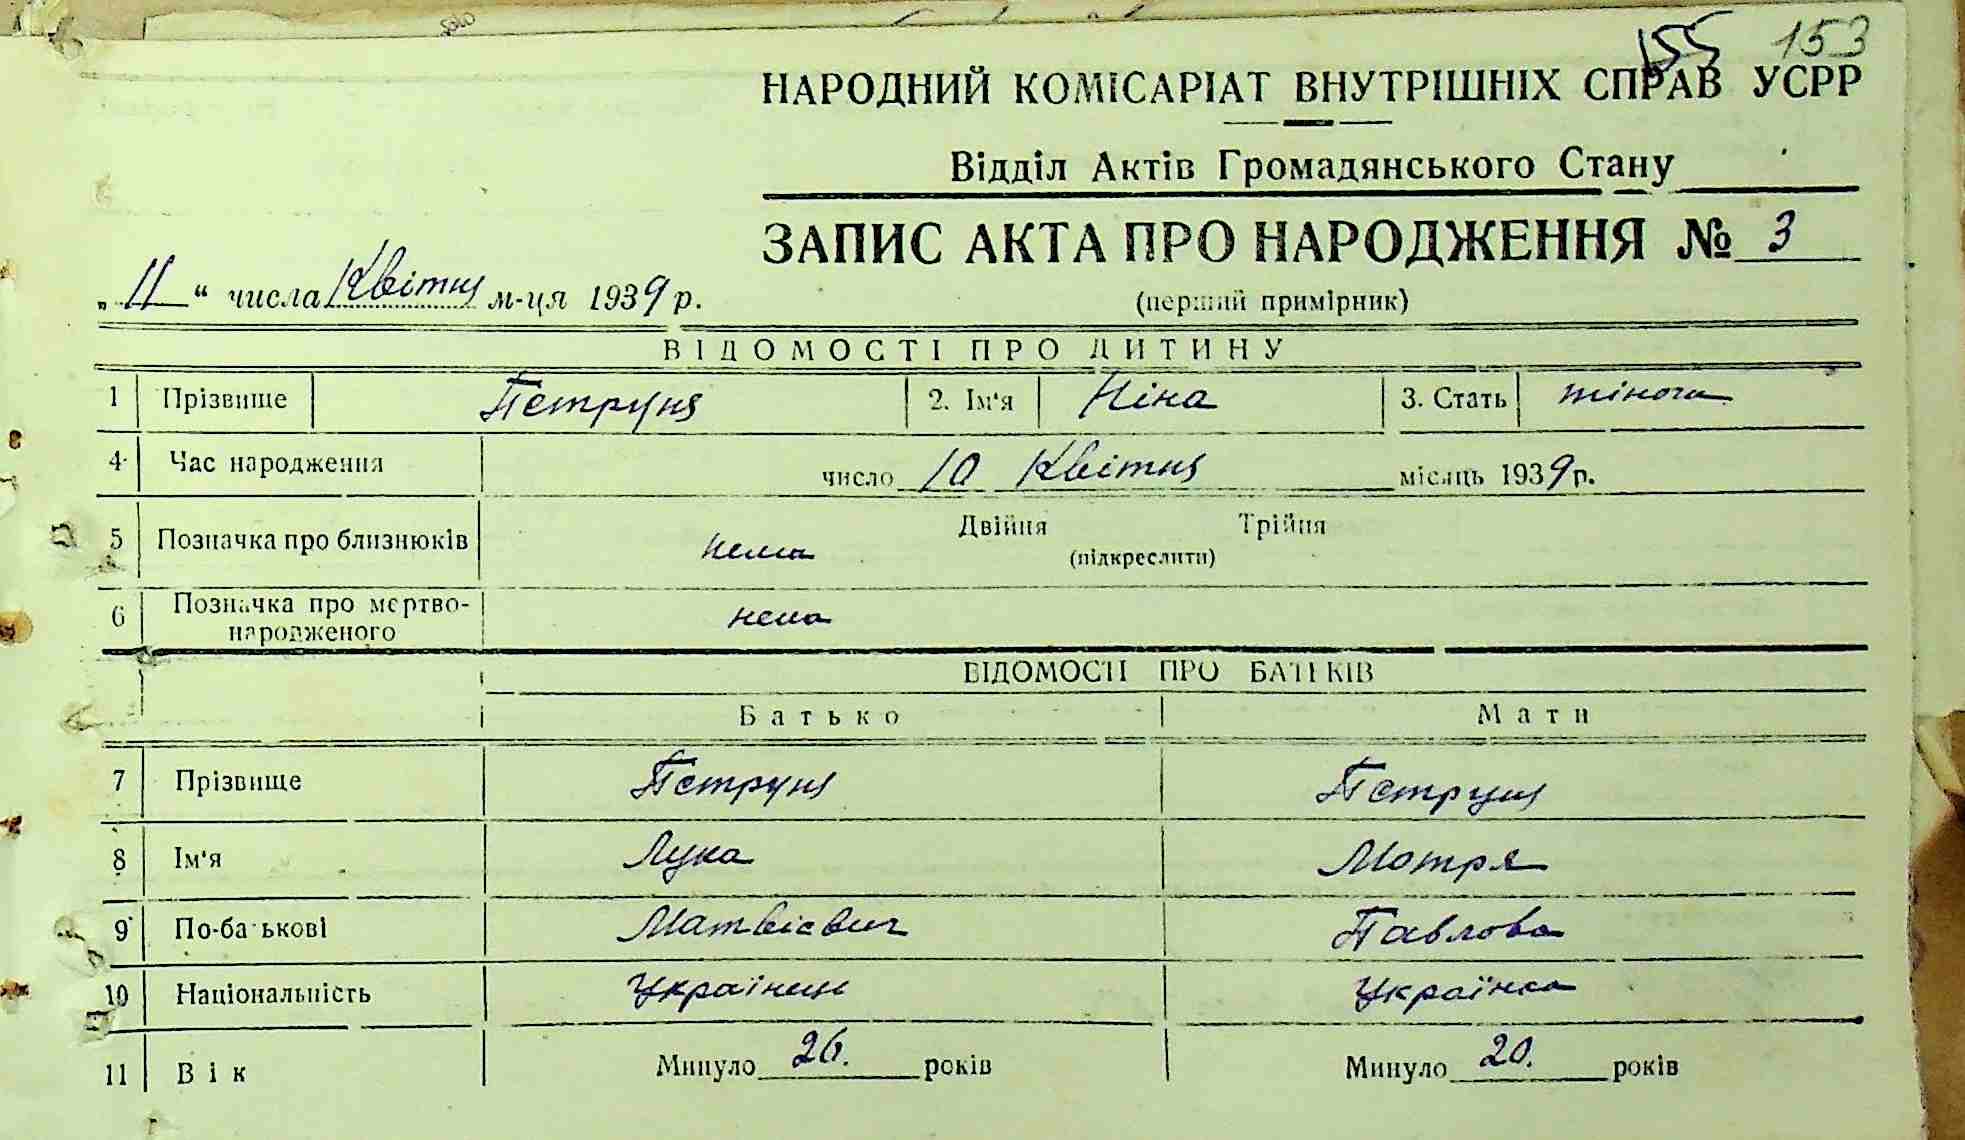 155 153
НАРОДНИЙ КОМІСАРІАТ ВНУТРІШНІХ СПРАВ УСРР
Відділ Актів Громадянського Стану
ЗАПИС АКТА ПРО НАРОДЖЕННЯ № 3
„ 11 “ числа Квітня м-ця 1939 р.
(перший примірник)
ВІДОМОСТІ ПРО ДИТИНУ
1 Прізвище Петруня 2. Ім'я Ніна 3. Стать жіноча
4 Час народження число 10 Квітня місяць 1939 р.
5 Позначка про близнюків нема Двійня Трійня
(підкреслити)
6 Позначка про мертво-
народженого нема
ВІДОМОСТІ ПРО БАТЬКІВ
Батько Мати
7 Прізвище Петруня Петруня
8 Ім'я Лука Мотря
9 По-батькові Матвієвич Павлова
10 Національність Українець Українка
11 Вік Минуло 26. років Минуло 20. років